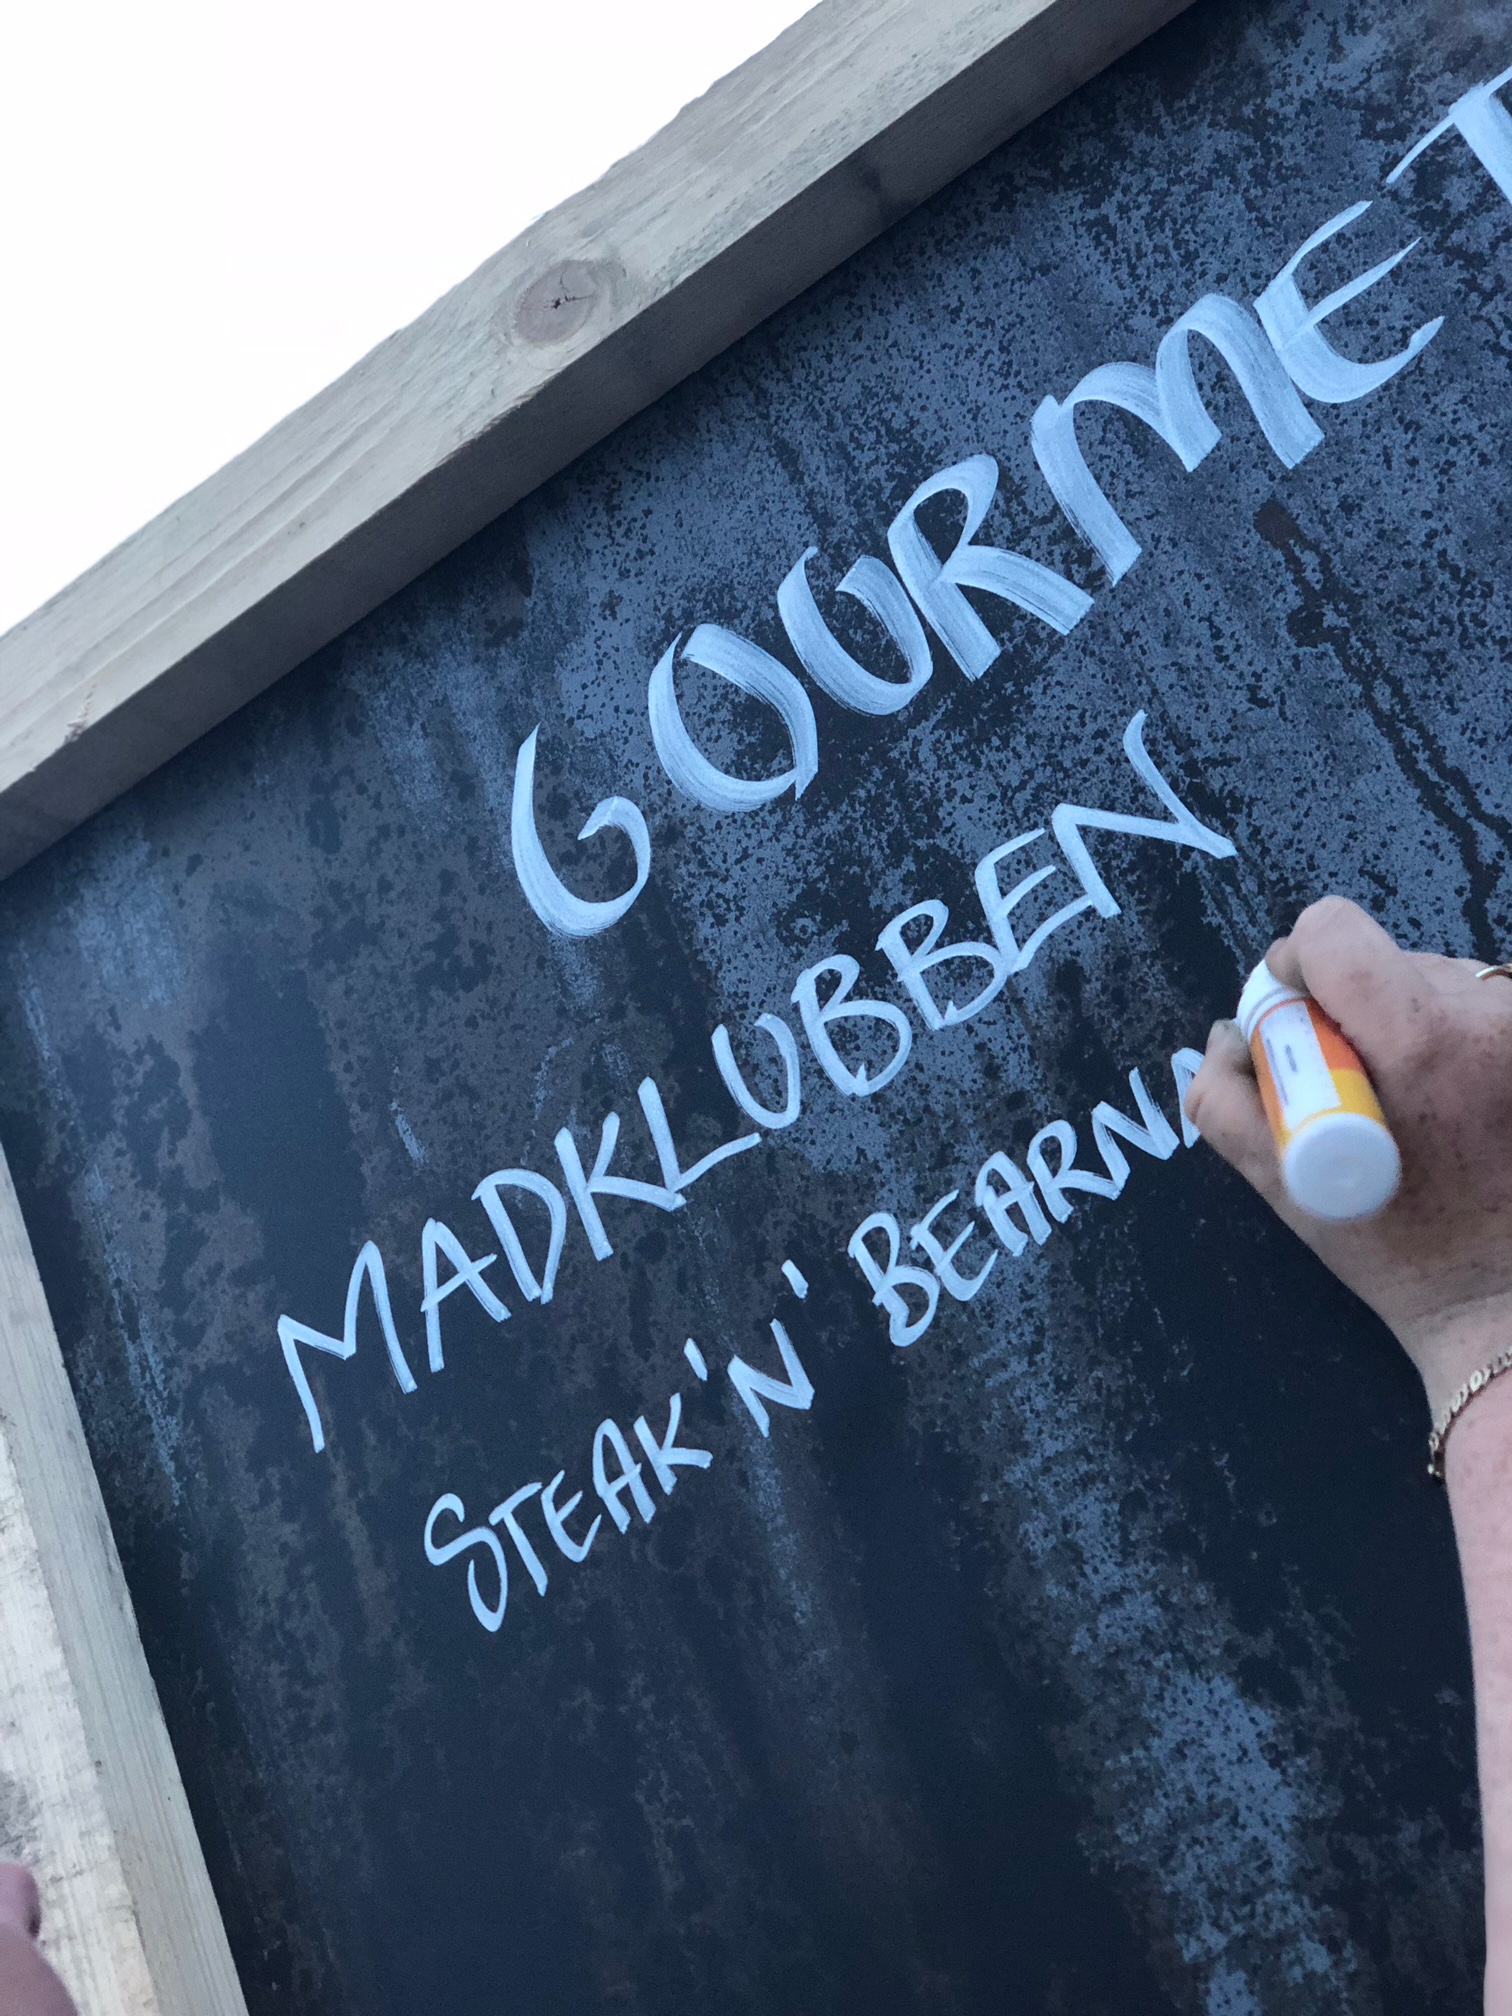 GOURMET
MADKLUBBEN
STEAK 'N' BEARNA